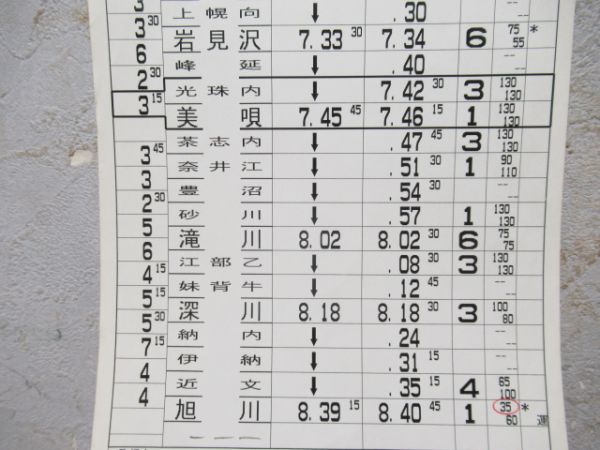 3 上幌向 ↓ .30 -- --
3 30 岩見沢 7.33 30 7.34 6 75 55 *
6 峰延 ↓ .40 -- --
2 30 光珠内 ↓ 7.42 30 3 130 130
3 15 美唄 7.45 45 7.46 15 1 130 130
茶志内 ↓ .47 45 3 130 130
3 45 奈井江 ↓ .51 30 1 90 110
3 豊沼 ↓ .54 30 -- --
2 30 砂川 ↓ .57 1 130 130
5 滝川 8.02 8.02 30 6 75 75
6 江部乙 ↓ .08 30 3 130 130
4 15 妹背牛 ↓ .12 45 -- --
5 15 深川 8.18 8.18 30 3 100 80
5 30 納内 ↓ .24 -- --
7 15 伊納 ↓ .31 15 -- --
4 近文 ↓ .35 15 4 65 100
4 旭川 8.39 15 8.40 45 1 35 60 * 運